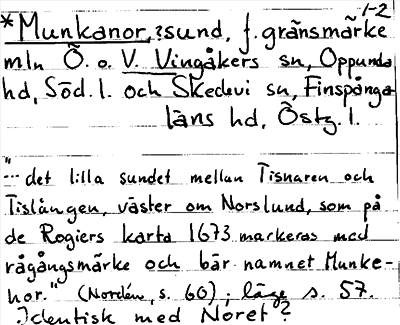 1-2
*Munkanor, ?sund, f. gränsmärke
mln Ö. o. V. Vingåkers sn, Oppunda
hd, Söd. l. och Skedevi sn, Finspånga
läns hd, Östg. l.
"... det lilla sundet mellan Tisnaren och
Tislången, väster om Norslund, som på
de Rogiers karta 1673 markeras med
rågångsmärke och bär namnet Munke-
nor." (Nordén, s. 60); läge s. 57.
Identisk med Noret?